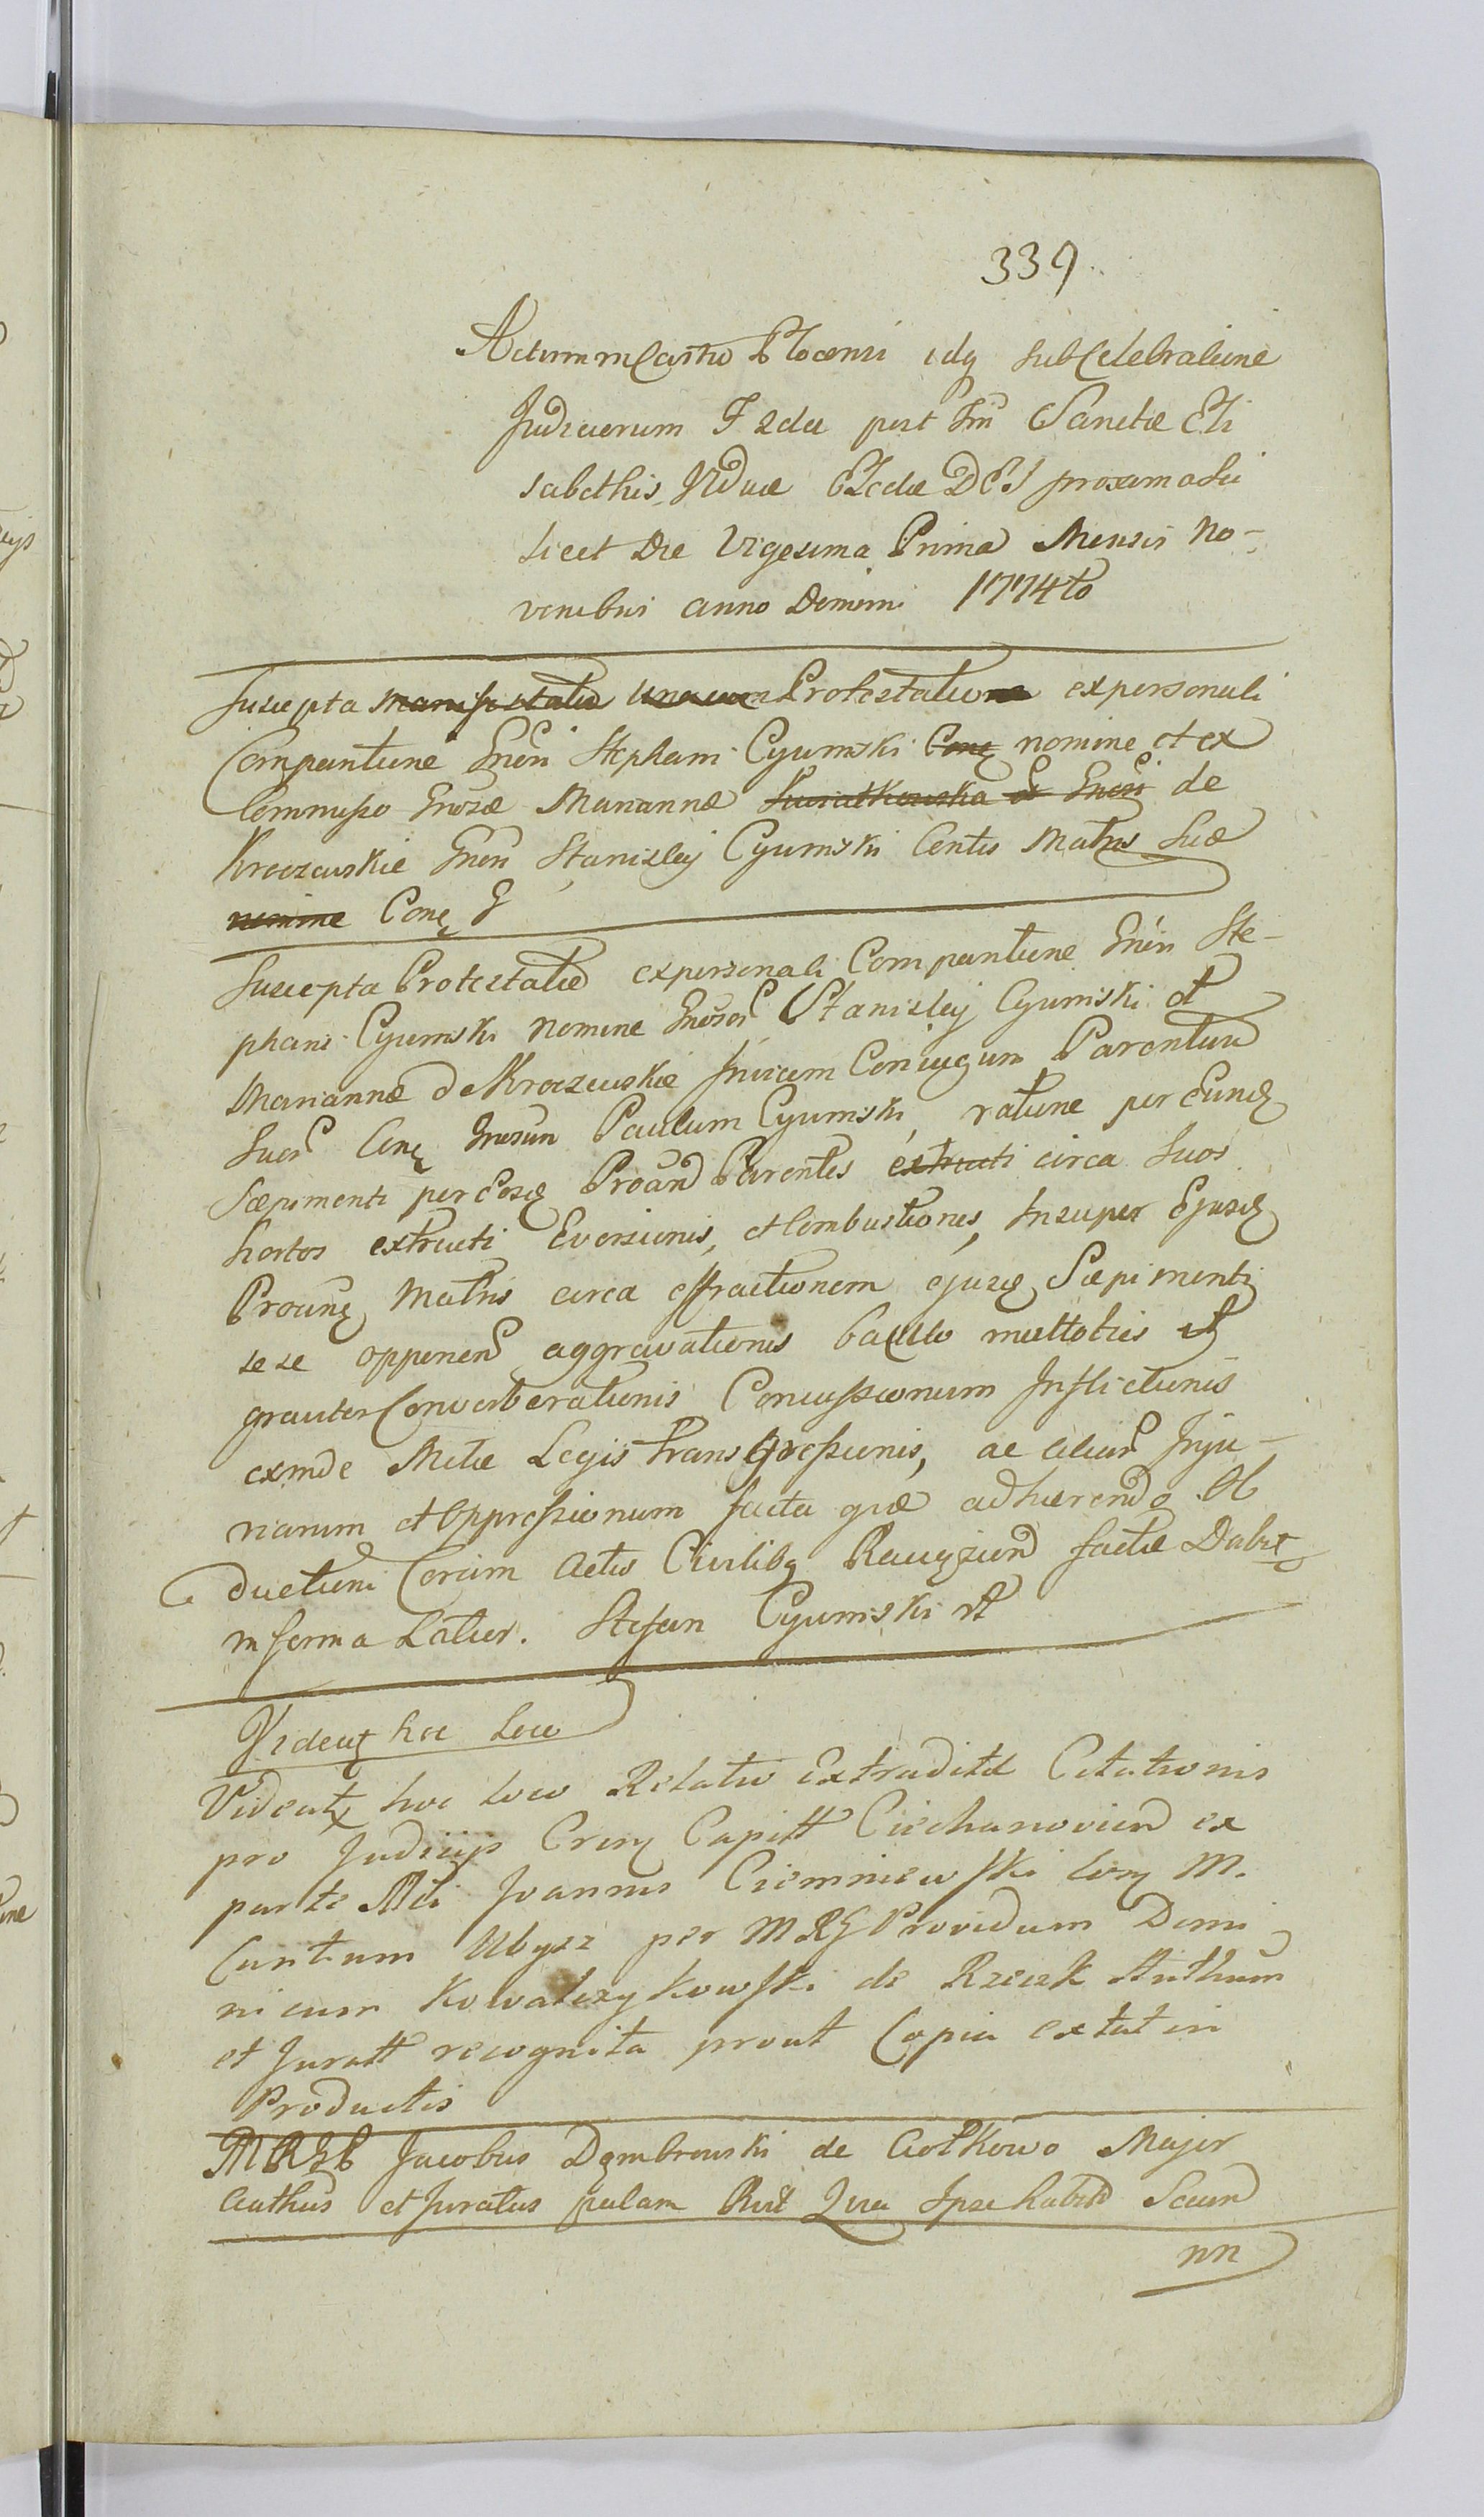 339.
Actum in Castro Plocensi idq sub Celebratione
Judiciorum F 2da post Fm Sanctæ Eli
sabethis Viduæ Electæ DEI proxima sci
licet Die Vigesima Prima Mensis No-
vembris anno Domini 1774to
Suscepta manifestatio una cum Protestatione ex personali
Comparitione Gnen Stephani Cyumski Conq nomine et ex
Commisso Gnosæ Mariannæ Kwiatkowska et Gnosi de
Kroczewskie Gnen Stanisley Cyumski Contis Matris Suæ
nomine Conq G
Suscepta Protestatio ex personali Comparitione Gnen Ste-
phani Cyumski Nomine Gnosor Stanisley Cyumski et
Mariannæ de Kroczewskie Invicem Coniugum Parentum
Suor Conq Gnosum Paulum Cyumski, ratione per Eundq
Sæpimenti per Eosq Proand Parentes extructi circa Suos
hortos extructi Eversionis, et Combustionis, Insuper Ejusq
Proanq Matris circa effractionem ejusq Sæpimenti
sese opponen aggravationis baculo multoties et
graviter Converberationis Concussionum Inflictionis
exinde Metæ Legis transgressionis, ac aliar Inju-
riarum et Oppressionum facta quæ adhærendo Ob
ductioni Coram Actis Civilibq Raciązien factæ Dabit
in forma Latior. Stefan Cyumski mp
Videatq hoc Loco
Videatq hoc loco Relatio Extraditæ Citationis
pro Judicijs Cresq Capitt Ciechanovien ex
parte Mci Joannis Ciemniewski Conq M.
Cantium Ubysz per MRG Providum Domi
nicum Kowalczykowski de Rzeczk Authum
et Juratt recognita prout Copia extat in
Productis
MRGP Jacobus Dąmbrowski de Ciołkowo Major
Authus et Juratus palam Rvit Qua Ipse habito Secum
nn